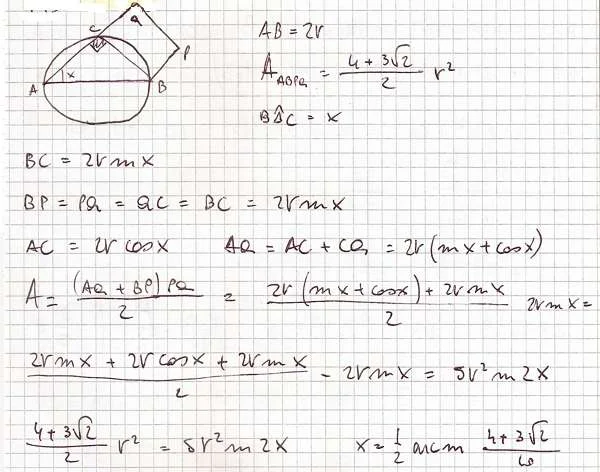 Q
C
P
x
A
B
AB = 2r
A_ABPQ = (4 + 3√2)/2 r²
BÂC = x
BC = 2r sin x
BP = PQ = QC = BC = 2r sin x
AC = 2r cos x AQ = AC + CQ = 2r (sin x + cos x)
A = ((AQ + BP) PQ)/2 = (2r (sin x + cos x) + 2r sin x)/2 2r sin x =
(2r sin x + 2r cos x + 2r sin x)/2 - 2r sin x = 5r² sin 2x
(4 + 3√2)/2 r² = 5r² sin 2x x = 1/2 arcsin (4 + 3√2)/10